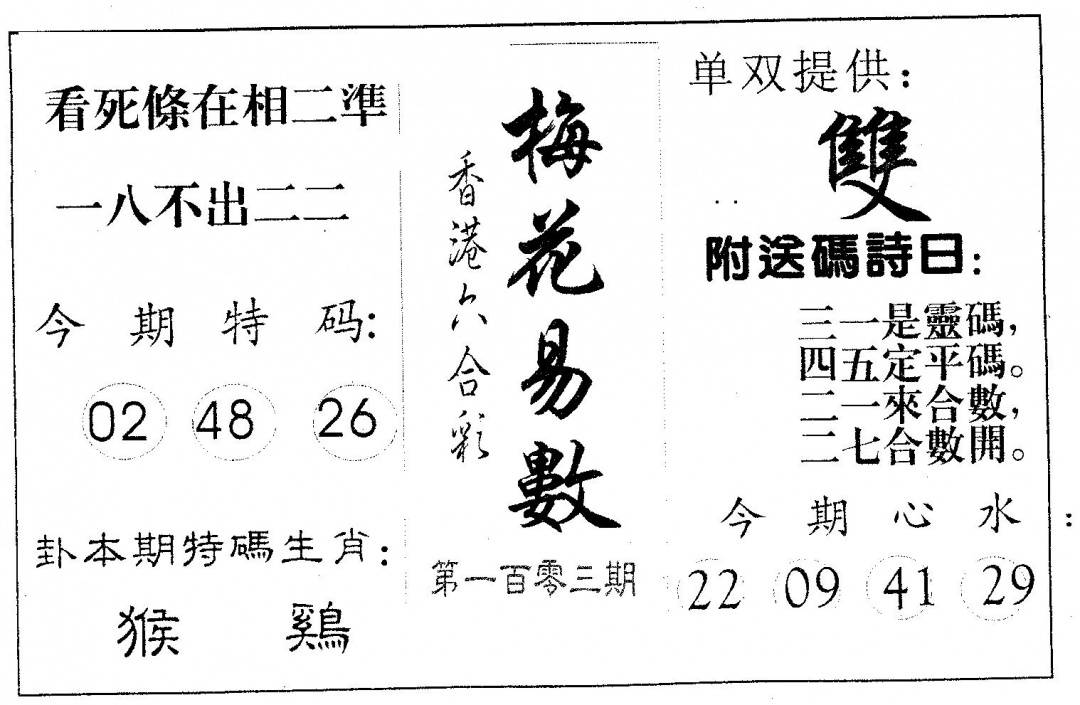 看死條在相二準
一八不出二二
今期特码:
02 48 26
卦本期特碼生肖:
猴 鷄
香港六合彩
梅花易數
第一百零三期
单双提供:
雙
附送碼詩曰:
三一是靈碼,
四五定平碼。
二一來合數,
二七合數開。
今期心水:
22 09 41 29